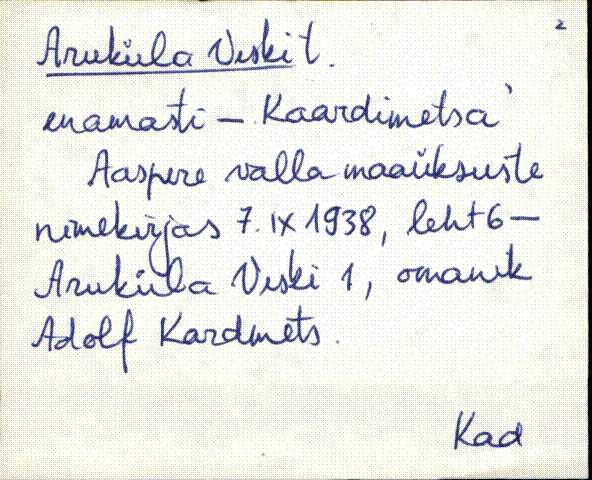 2
Aruküla Veski t.
enamasti – Kaardimetsa'
Aaspere valla maaüksuste
nimekirjas 7. IX 1938, leht 6 –
Aruküla Veski 1, omanik
Adolf Kardmets.
Kad